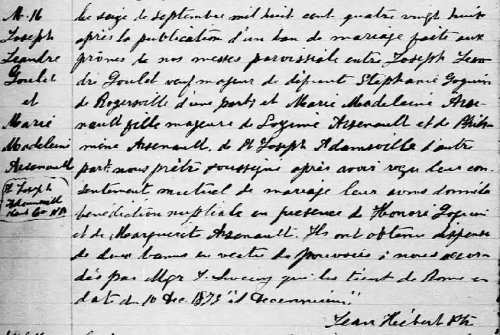 M. 16
Joseph
Leandre
Goulet
et
Marie
Madeleine
Arsenault
St Joseph
Adamsville
Kent Co NB
Le seize de septembre mil huit cent quatre vingt huit
après la publication d'un ban de mariage faite aux
prônes de nos messes paroissiale entre Joseph Lean
dre Goulet veuf majeur de défunte Stephanie Goguin
de Rogersville d'une part; et Marie Madelaine Arse
nault fille majeure de Arsenault et de Phile
mine Arsenault, de St Joseph Adamsville d'autre
part. nous prêtre soussigné après avoir reçu leur con
sentement mutuel de mariage leur avons donné la
bénédiction nuptiale en presence de Honoré Goguin
et de Marguerit Arsenault. Ils ont obtenu dispense
de deux bans en vertu de pouvoirs à nous accor
dés par Mgr J. Sweeny qui les tient de Rome en
date du 10 Dec. 1875 "ad Decennium"
Jean Hébert Ptr